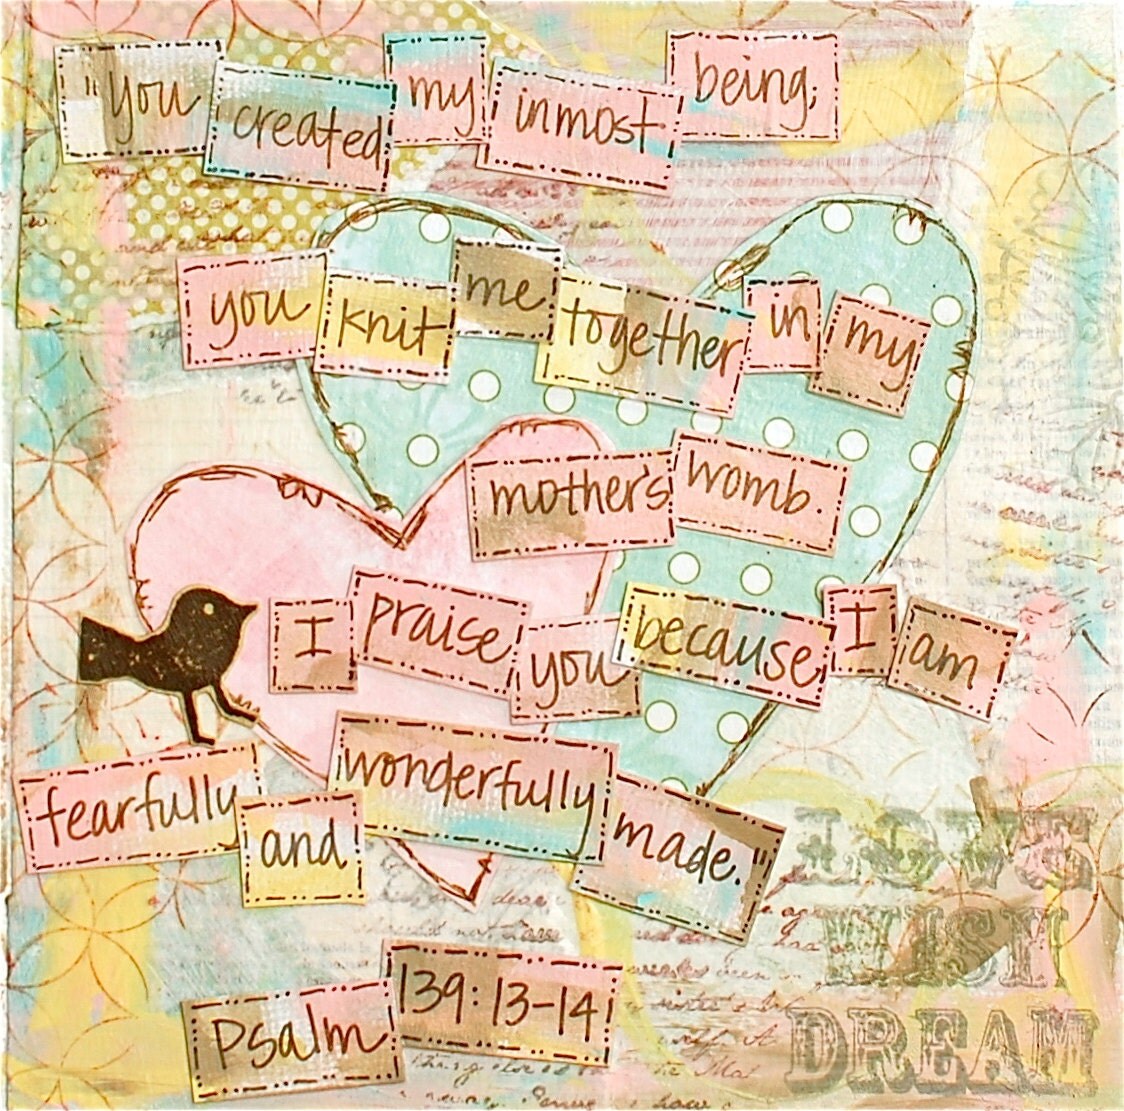 "you created my inmost being;
you knit me together in my
mother's womb.
I praise you because I am
fearfully and wonderfully made."
Psalm 139:13-14
LOVE
WISH
DREAM